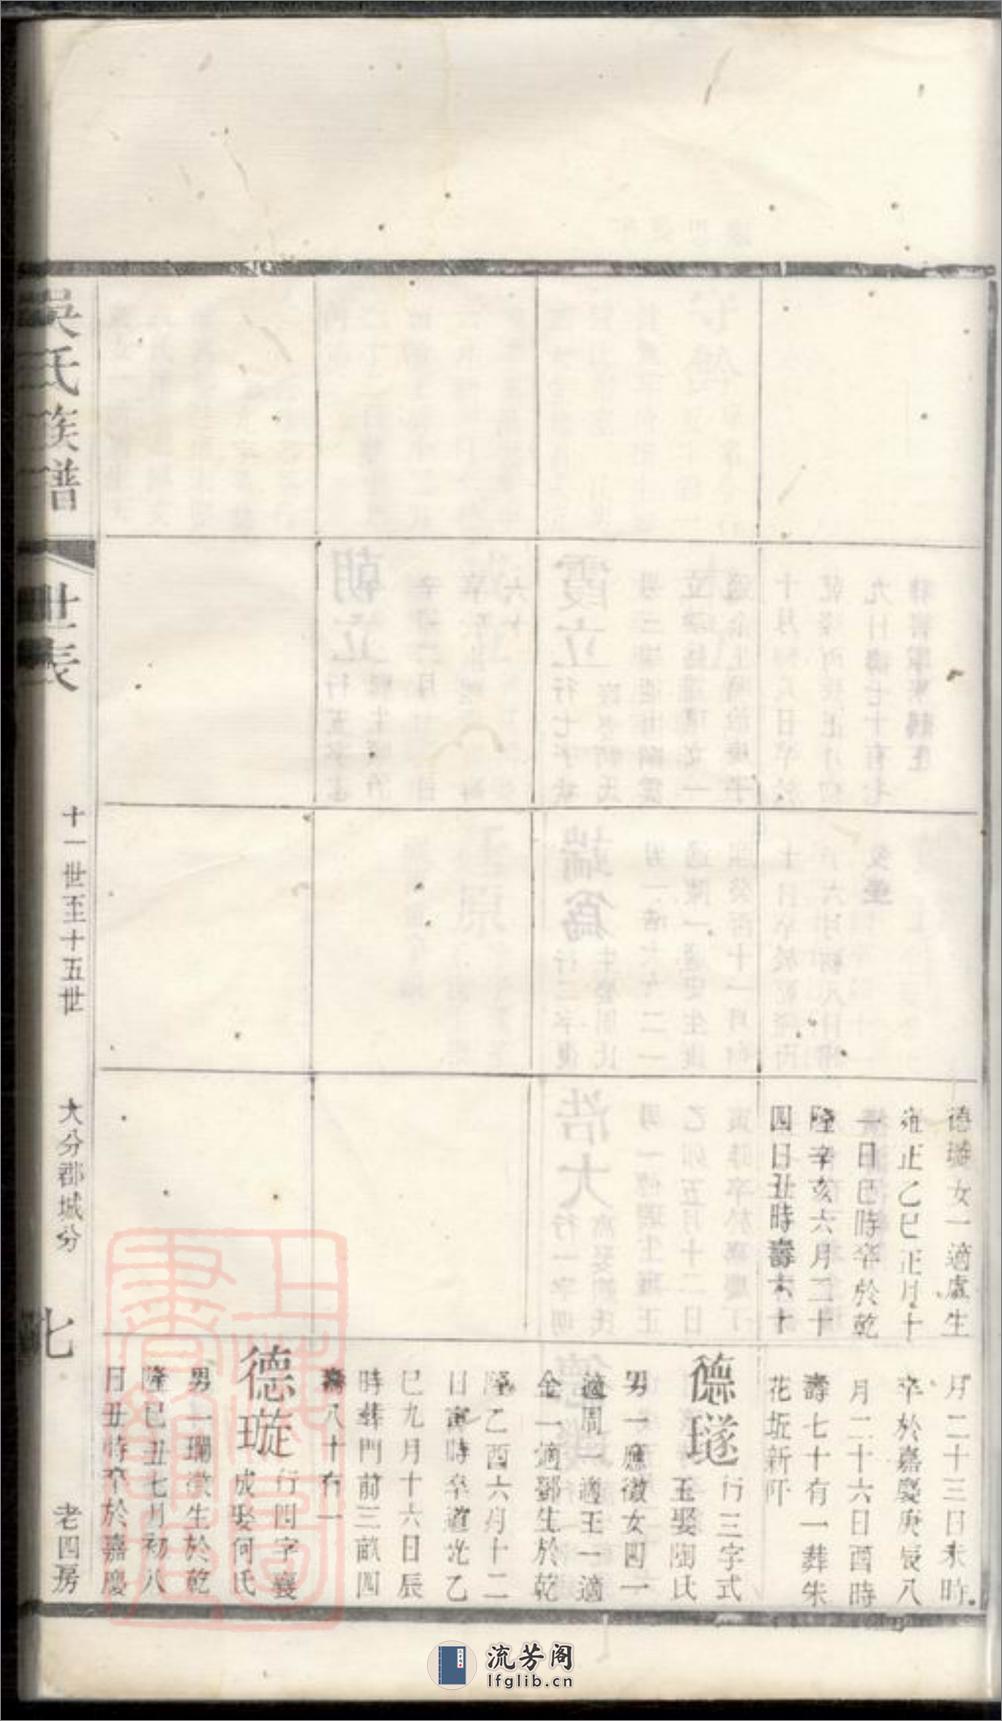 德璇女一適盧生
雍正乙巳正月十
一日巳時卒於乾
隆辛亥六月二十
四日丑時壽六十
月二十三日未時
卒於嘉慶庚辰八
月二十六日酉時
壽七十有一葬朱
花坵新吓
德璲
行三字式
玉娶閩氏
男一應徵女四一
適周一適王一適
金一適鄧生於乾
隆乙酉六月十二
日寅時卒道光乙
巳九月十六日辰
時葬門前三畝四
壽八十有一
德璇
行四字襄
成娶何氏
男一瓓徵生於乾
隆己丑七月初八
日丑時卒於嘉慶
吳氏族譜
世表
十一世至十五世
大分郡城分
七
老四房
流芳阁
lfglib.cn